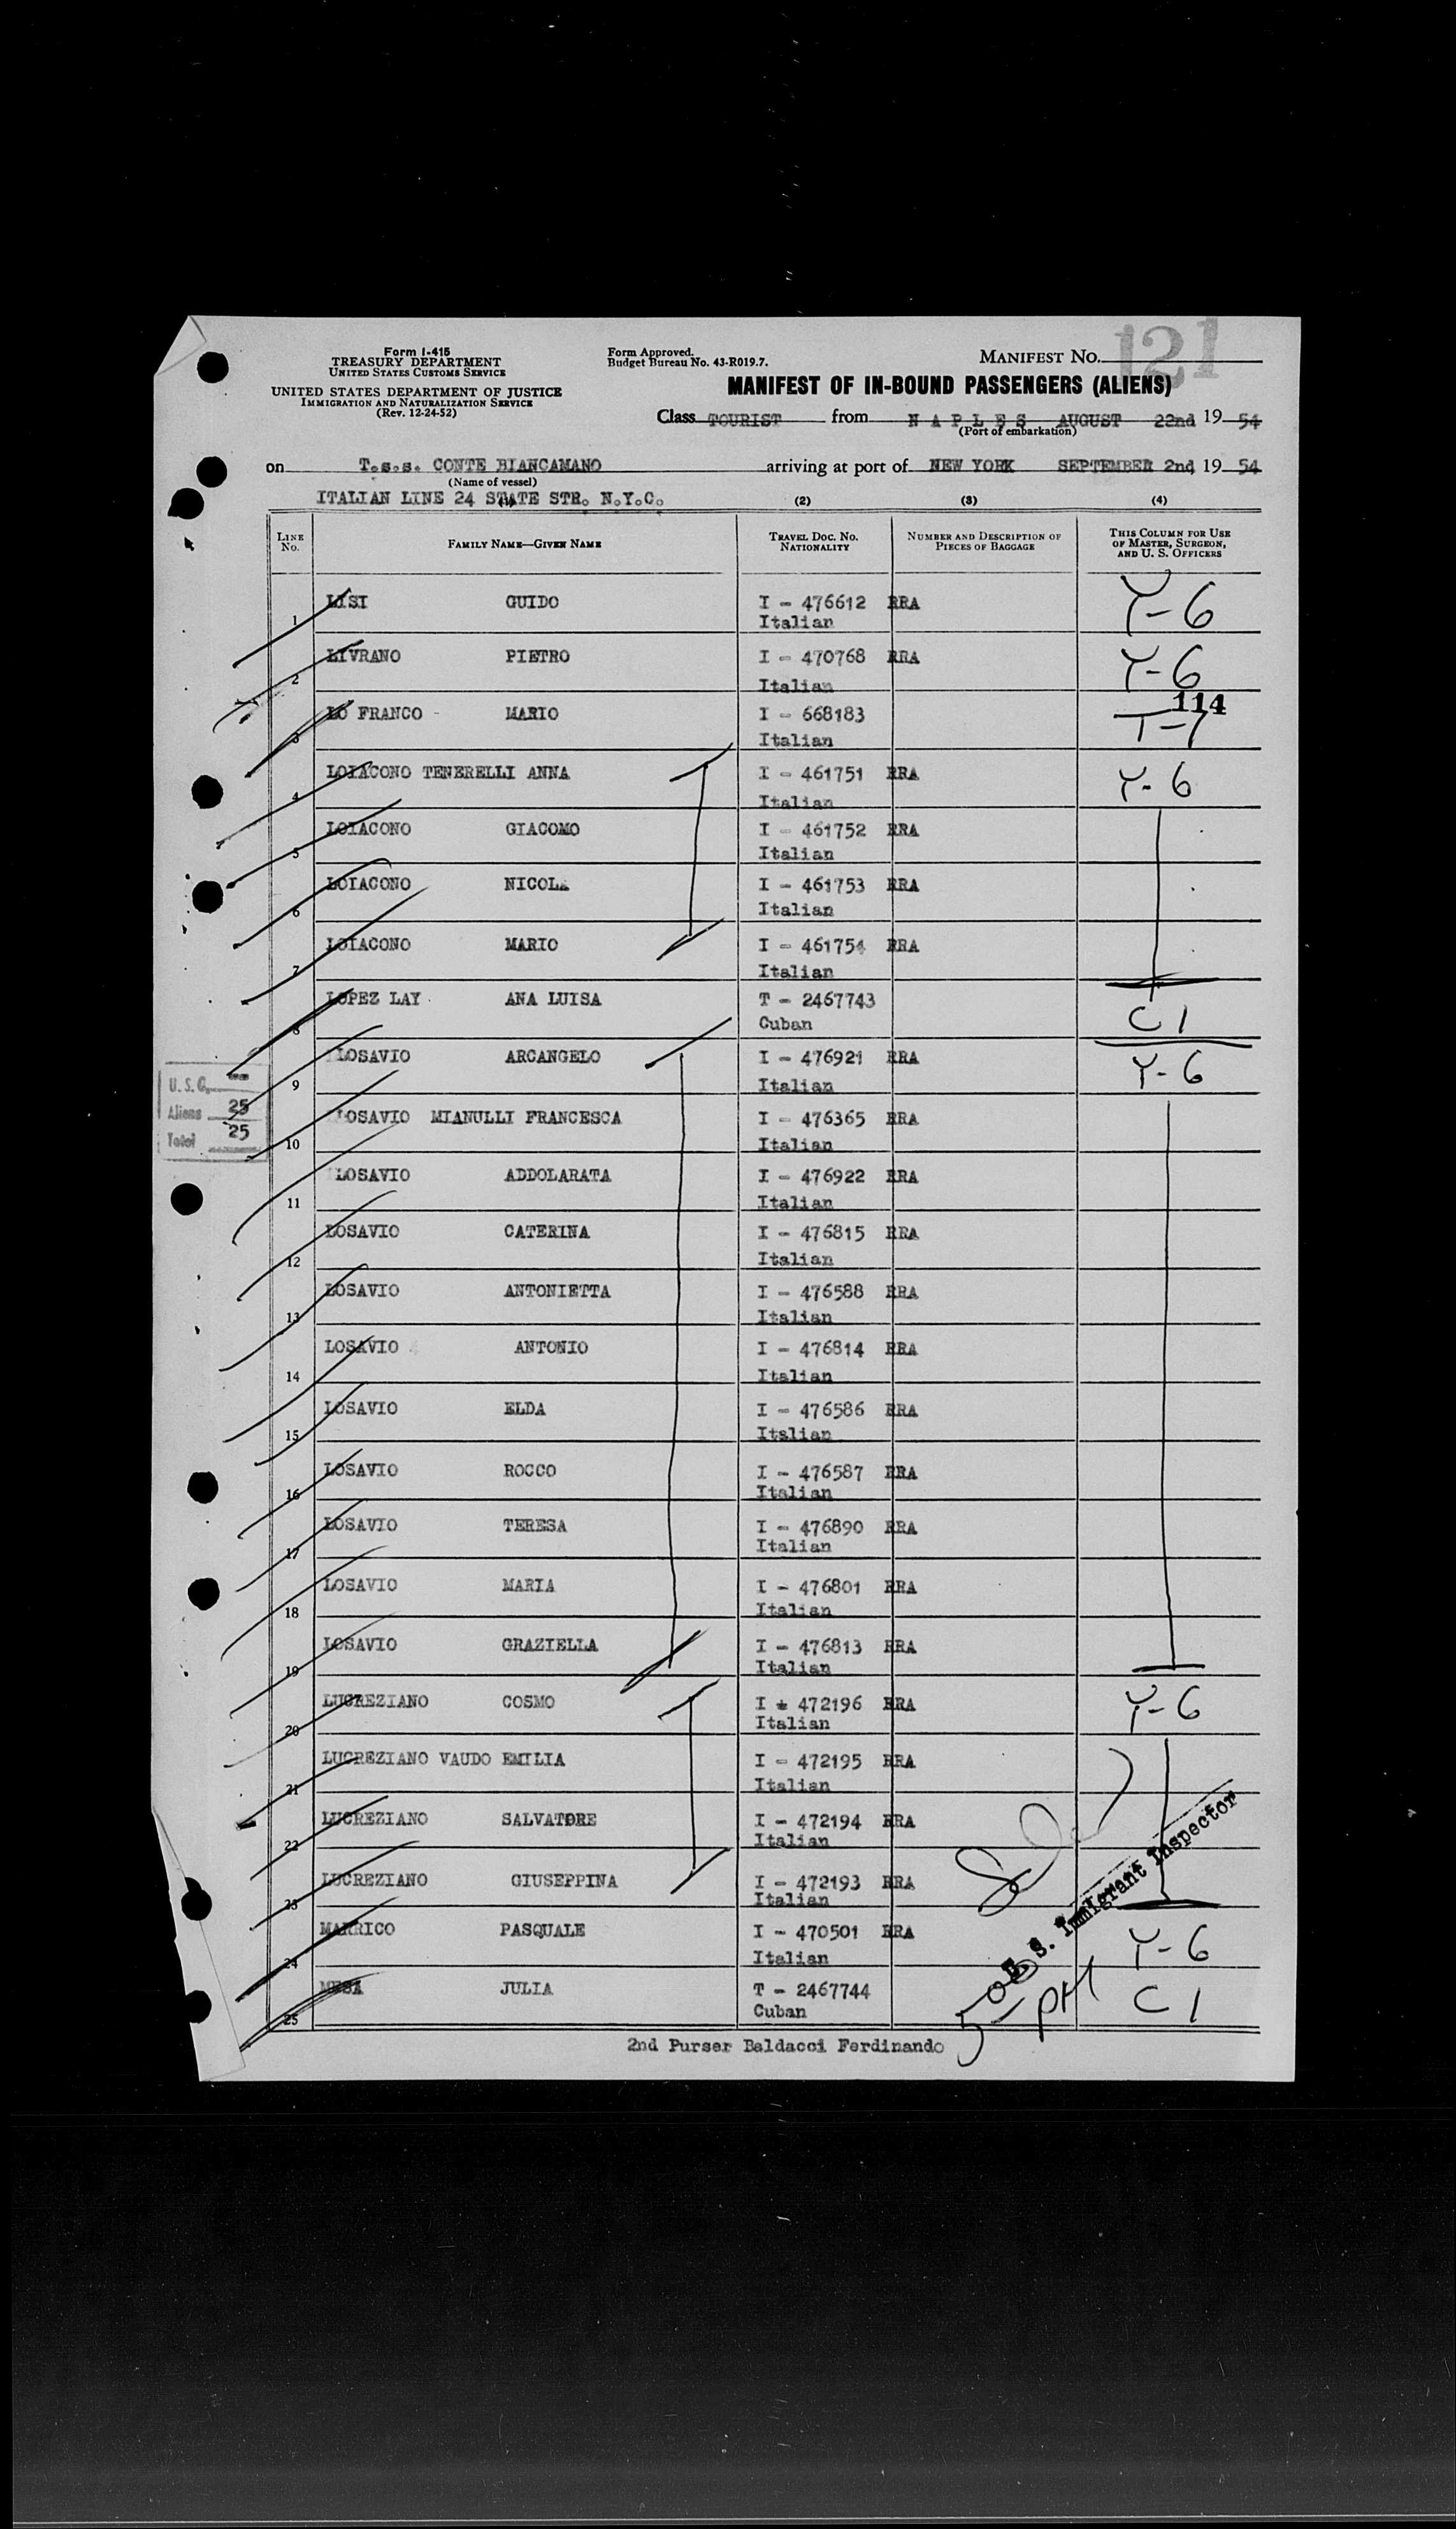 121
Form I-415
TREASURY DEPARTMENT
UNITED STATES CUSTOMS SERVICE
UNITED STATES DEPARTMENT OF JUSTICE
IMMIGRATION AND NATURALIZATION SERVICE
(Rev. 12-24-52)
Form Approved.
Budget Bureau No. 43-R019.7.
MANIFEST NO.
MANIFEST OF IN-BOUND PASSENGERS (ALIENS)
Class TOURIST from N A P L E S AUGUST 22nd 19 54
(Port of embarkation)
on T.s.s. CONTE BIANCAMANO arriving at port of NEW YORK SEPTEMBER 2nd 19 54
(Name of vessel)
ITALIAN LINE 24 STATE STR. N.Y.C. (2) (3) (4)
LINE NO. FAMILY NAME—GIVEN NAME TRAVEL DOC. NO. NATIONALITY NUMBER AND DESCRIPTION OF PIECES OF BAGGAGE THIS COLUMN FOR USE OF MASTER, SURGEON, AND U. S. OFFICERS
1 LISI GUIDO I - 476612 RRA Y-6
Italian
2 LIVRANO PIETRO I - 470768 RRA Y-6
Italian
114
3 LO FRANCO - MARIO I - 668183 T-1
Italian
4 LOIACONO TENERELLI ANNA I - 461751 RRA Y-6
Italian
5 LOIACONO GIACOMO I - 461752 RRA
Italian
6 LOIACONO NICOLA I - 461753 RRA
Italian
7 LOIACONO MARIO I - 461754 RRA
Italian
8 LOPEZ LAY ANA LUISA T - 2467743 C 1
Cuban
9 LOSAVIO ARCANGELO I - 476921 RRA Y-6
Italian
U. S. C.
Aliens 25
Total 25
10 LOSAVIO MIANULLI FRANCESCA I - 476365 RRA
Italian
11 LOSAVIO ADDOLARATA I - 476922 RRA
Italian
12 LOSAVIO CATERINA I - 476815 RRA
Italian
13 LOSAVIO ANTONIETTA I - 476588 RRA
Italian
14 LOSAVIO ANTONIO I - 476814 RRA
Italian
15 LOSAVIO ELDA I - 476586 RRA
Italian
16 LOSAVIO ROCCO I - 476587 RRA
Italian
17 LOSAVIO TERESA I - 476890 RRA
Italian
18 LOSAVIO MARIA I - 476801 RRA
Italian
19 LOSAVIO GRAZIELLA I - 476813 RRA
Italian
20 LUCREZIANO COSMO I - 472196 RRA Y-6
Italian
21 LUCREZIANO VAUDO EMILIA I - 472195 RRA
Italian
22 LUCREZIANO SALVATORE I - 472194 RRA
Italian
23 LUCREZIANO GIUSEPPINA I - 472193 RRA
Italian
U. S. Immigrant Inspector
24 MARRICO PASQUALE I - 470501 RRA Y-6
Italian
25 MESA JULIA T - 2467744 C 1
Cuban
5 00 PM
2nd Purser Baldacci Ferdinando